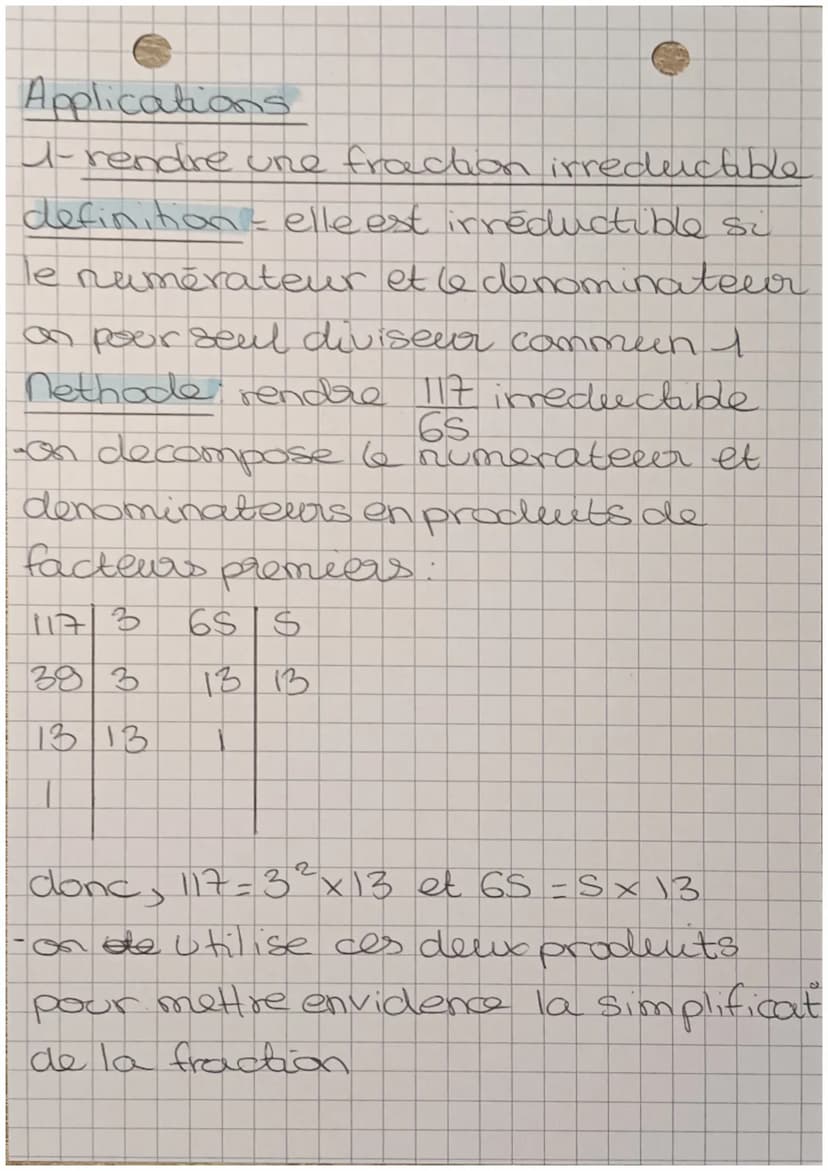 Applications
1- rendre une fraction irreductable
definition = elle est irréductible si
le numérateur et le denominateur
on pour seul diviseur commun 1
Methode : rendre 117/65 irreductable
-on decompose le numerateur et
denominateurs en produits de
facteurs premiers :
117 | 3 65 | 5
39 | 3 13 | 13
13 | 13 1 |
1 |
donc, 117 = 3² × 13 et 65 = 5 × 13
-on utilise ces deux produits
pour mettre en vidence la simplificat°
de la fraction